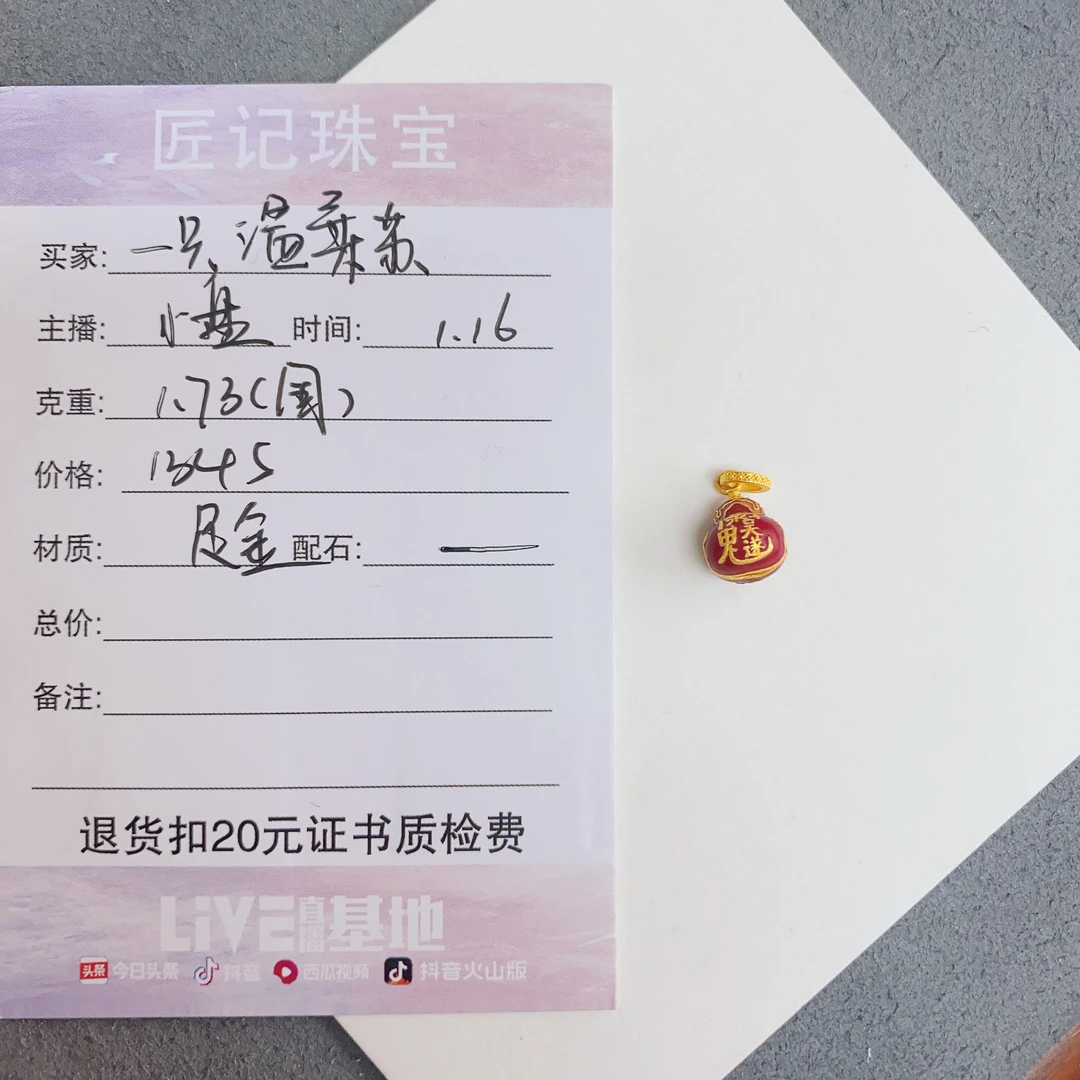 匠记珠宝
买家: 一只温柔苏
主播: 时间: 1.16
克重: 1.73(国)
价格: 1345
材质: 足金 配石: —
总价:
备注:
退货扣20元证书质检费
LiVE直播基地
头条 今日头条 抖音 西瓜视频 抖音火山版